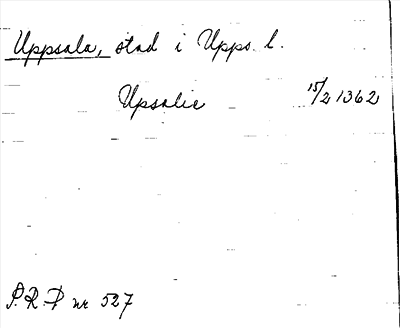 Uppsala, stad i Upps. l.
Upsalie 15/2 1362
S.R.P. nr 527